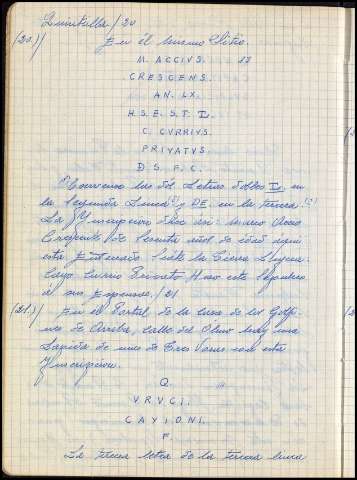 (20.)/
en el mismo Sitio.
M. ACCIVS. 13
CRESCENS.
AN. LX.
H. S. E. S. T. L.
C. CVRRIVS.
PRIVATVS.
D. S. F. C.
las dos Letras dobles L. en
la segunda Linea y DE. en la tercera.
La Ynscripcion dice asi: Marco Accio
Crescente, de sesenta años de edad aqui
esta Seale la tierra Lijera.
Cayo Curcio Privato Hizo este Sepulcro
á sus expensas. /21
(21.)/ en el Portal de la Casa de los Golfi-
nes de Arriba, calle del Olmo hay una
Lapida de mas de tres Varas con esta
Ynscripcion.
Q.
VRVCI.
CAYIONI.
F.
La tercera letra de la tercera linea